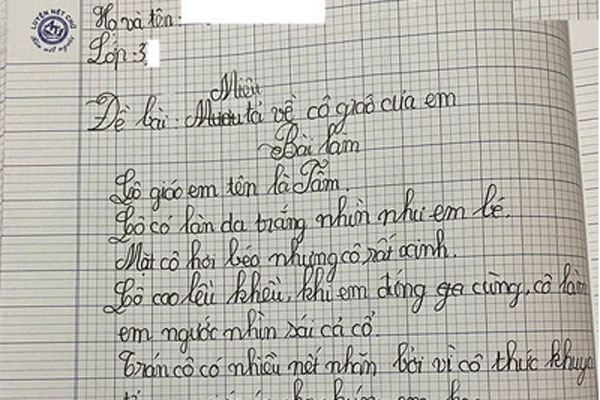 LUYỆN NÉT CHỮ
Rèn nết người
Họ và tên:
Lớp: 3
Miêu
Đề bài: Mưu tả về cô giáo của em
Bài làm
Cô giáo em tên là Tẩm.
Cô có làn da trắng nhìn như em bé.
Mặt cô hơi béo nhưng cô rất xinh.
Cô cao lêu khêu, khi em đứng ga cùng, cô làm
em ngước nhìn sái cả cổ.
Trán cô có nhiều nết nhăn bởi vì cô thức khuya